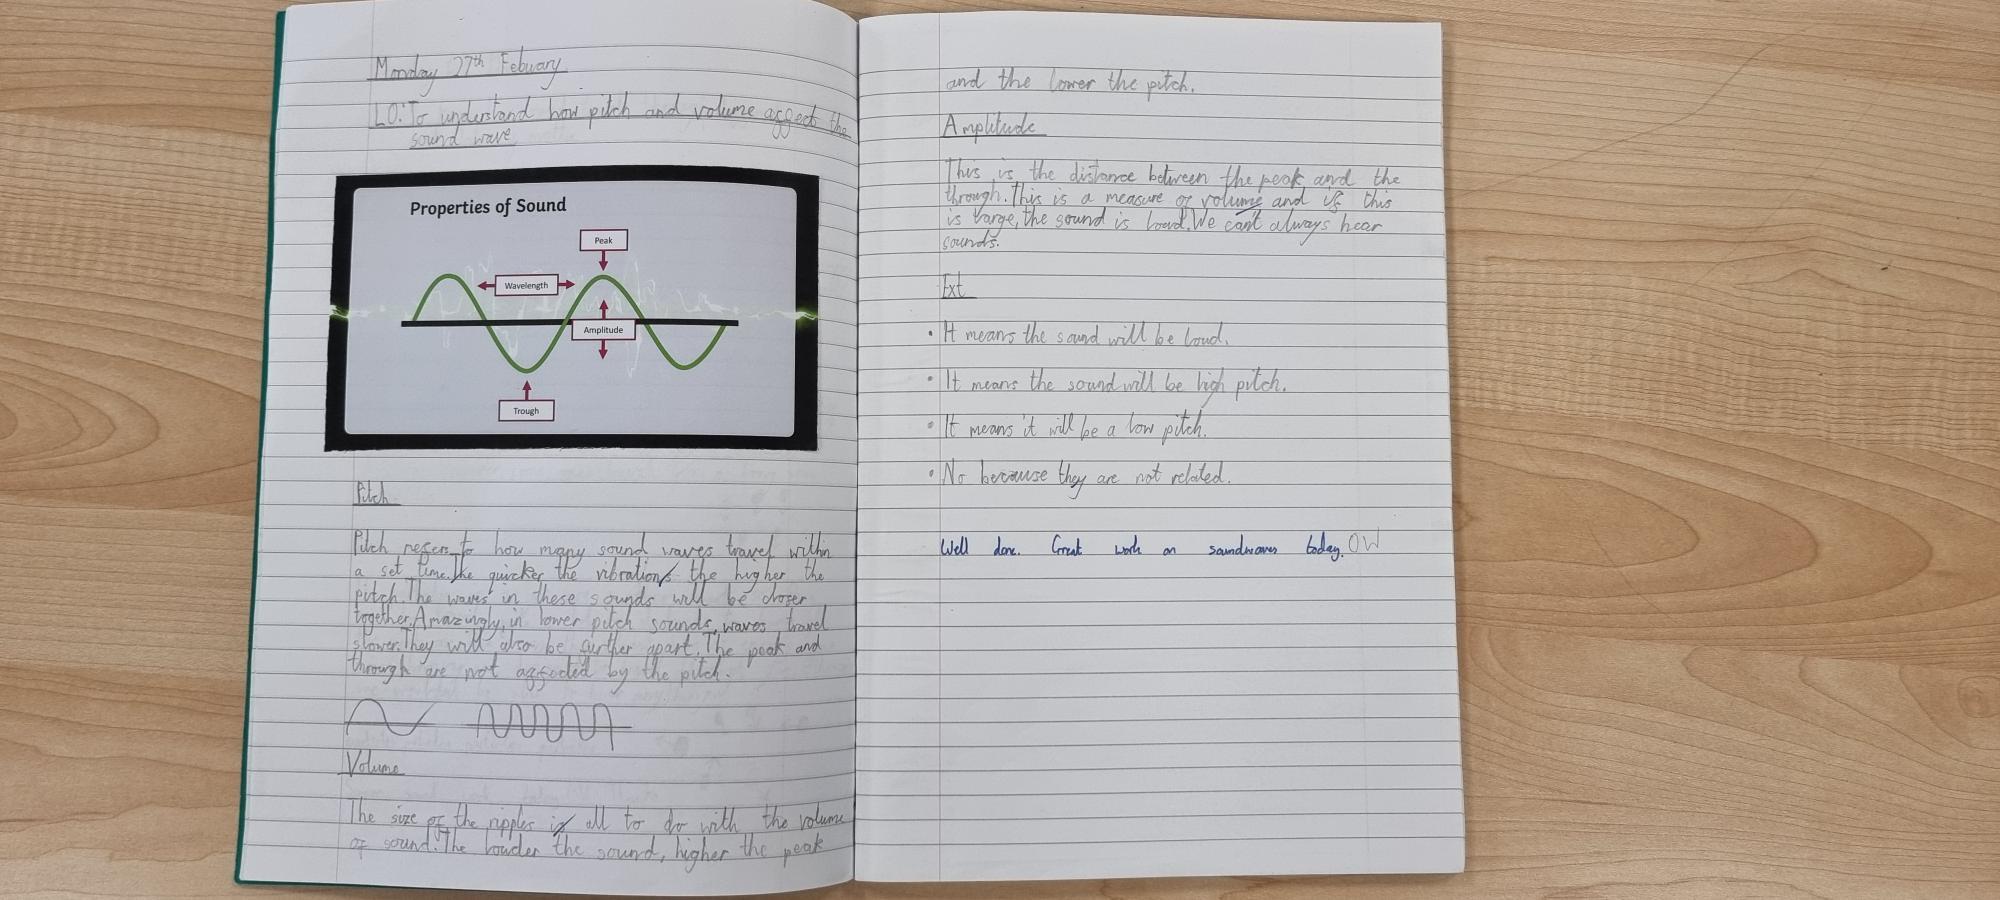 Monday 27th Febuary
LO: To understand how pitch and volume affect the
sound wave
Properties of Sound
Peak
Wavelength
Amplitude
Trough
Pitch
Pitch refers to how many sound waves travel within
a set time. The quicker the vibrations the higher the
pitch. The waves in these sounds will be closer
together. Amazingly, in lower pitch sounds, waves travel
slower. They will also be further apart. The peak and
through are not affected by the pitch.
Volume
The size of the ripples is all to do with the volume
of sound. The louder the sound, higher the peak
and the lower the pitch.
Amplitude
This is the distance between the peak and the
through. This is a measure of volume and if this
is large, the sound is loud. We can't always hear
sounds.
Ext
• It means the sound will be loud.
• It means the sound will be high pitch.
• It means it will be a low pitch.
• No because they are not related.
Well done. Great work on soundwaves today. OW